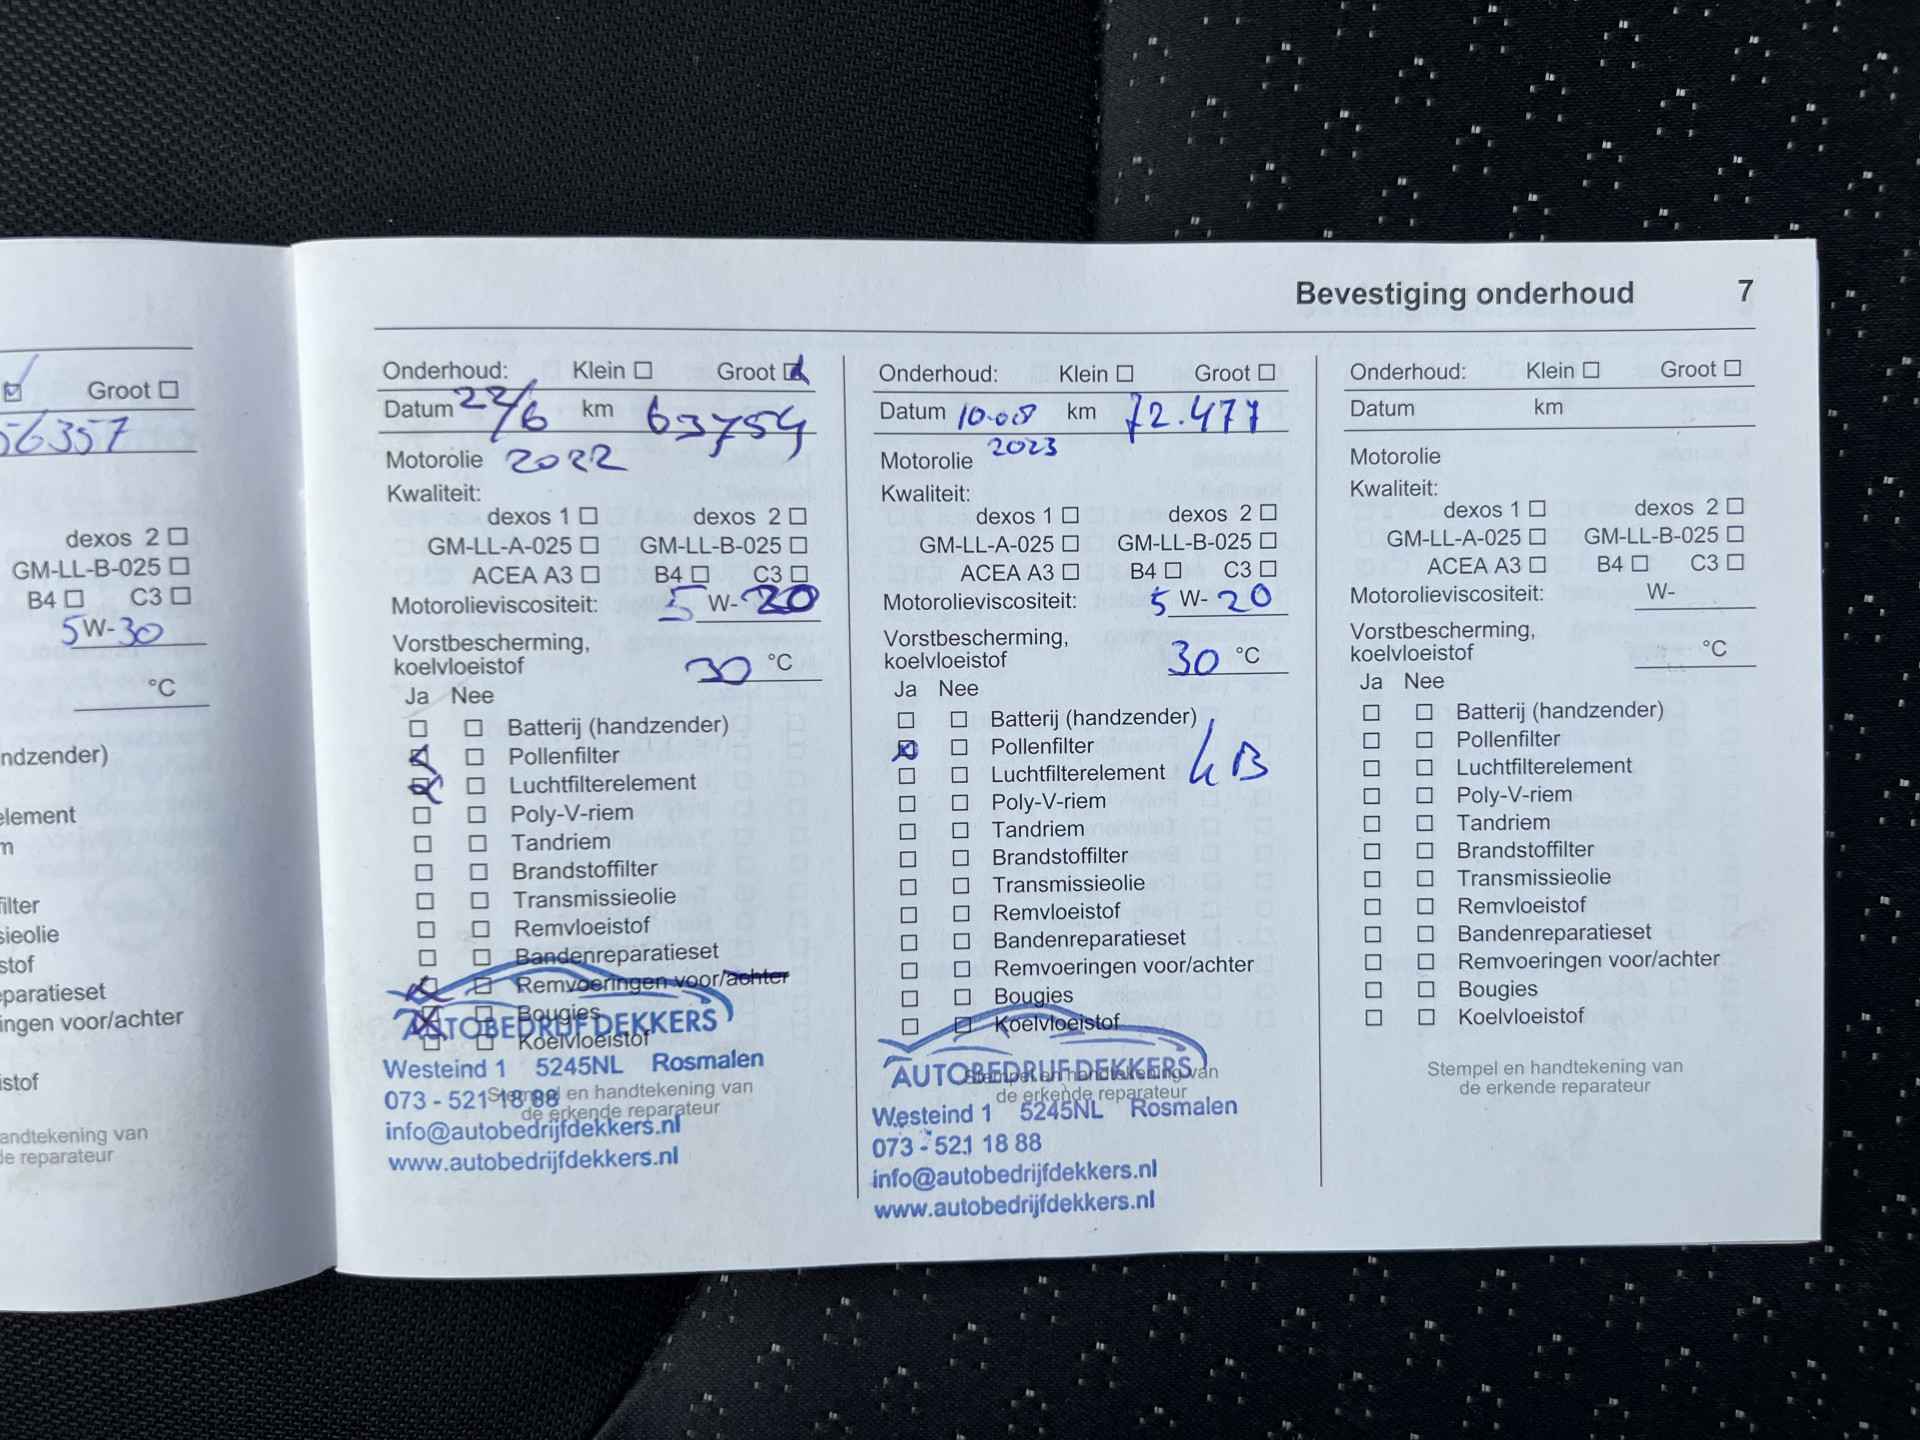 Groot ☐
56357
dexos 2 ☐
GM-LL-B-025 ☐
B4 ☐ C3 ☐
5W-30
°C
ndzender)
element
m
filter
sieolie
stof
paratieset
ingen voor/achter
istof
andtekening van
de reparateur
Bevestiging onderhoud 7
Onderhoud: Klein ☐ Groot ☒
Datum 22/6 km 63754
Motorolie 2022
Kwaliteit:
dexos 1 ☐ dexos 2 ☐
GM-LL-A-025 ☐ GM-LL-B-025 ☐
ACEA A3 ☐ B4 ☐ C3 ☐
Motorolieviscositeit: 5 W-20
Vorstbescherming,
koelvloeistof 30 °C
Ja Nee
☐ ☐ Batterij (handzender)
☒ ☐ Pollenfilter
☒ ☐ Luchtfilterelement
☐ ☐ Poly-V-riem
☐ ☐ Tandriem
☐ ☐ Brandstoffilter
☐ ☐ Transmissieolie
☐ ☐ Remvloeistof
☐ ☐ Bandenreparatieset
☒ ☐ Remvoeringen voor/achter
☒ ☐ Bougies
☐ ☐ Koelvloeistof
AUTOBEDRIJF DEKKERS
Westeind 1 5245NL Rosmalen
Stempel en handtekening van
073 - 521 18 88
de erkende reparateur
info@autobedrijfdekkers.nl
www.autobedrijfdekkers.nl
Onderhoud: Klein ☐ Groot ☐
Datum 10-08 km 72.477
2023
Motorolie
Kwaliteit:
dexos 1 ☐ dexos 2 ☐
GM-LL-A-025 ☐ GM-LL-B-025 ☐
ACEA A3 ☐ B4 ☐ C3 ☐
Motorolieviscositeit: 5 W-20
Vorstbescherming,
koelvloeistof 30 °C
Ja Nee
☐ ☐ Batterij (handzender)
☒ ☐ Pollenfilter
☐ ☐ Luchtfilterelement
☐ ☐ Poly-V-riem
☐ ☐ Tandriem
☐ ☐ Brandstoffilter
☐ ☐ Transmissieolie
☐ ☐ Remvloeistof
☐ ☐ Bandenreparatieset
☐ ☐ Remvoeringen voor/achter
☐ ☐ Bougies
☐ ☐ Koelvloeistof
AUTOBEDRIJF DEKKERS
Stempel en handtekening van
de erkende reparateur
Westeind 1 5245NL Rosmalen
073 - 521 18 88
info@autobedrijfdekkers.nl
www.autobedrijfdekkers.nl
Onderhoud: Klein ☐ Groot ☐
Datum km
Motorolie
Kwaliteit:
dexos 1 ☐ dexos 2 ☐
GM-LL-A-025 ☐ GM-LL-B-025 ☐
ACEA A3 ☐ B4 ☐ C3 ☐
Motorolieviscositeit: W-
Vorstbescherming,
koelvloeistof °C
Ja Nee
☐ ☐ Batterij (handzender)
☐ ☐ Pollenfilter
☐ ☐ Luchtfilterelement
☐ ☐ Poly-V-riem
☐ ☐ Tandriem
☐ ☐ Brandstoffilter
☐ ☐ Transmissieolie
☐ ☐ Remvloeistof
☐ ☐ Bandenreparatieset
☐ ☐ Remvoeringen voor/achter
☐ ☐ Bougies
☐ ☐ Koelvloeistof
Stempel en handtekening van
de erkende reparateur